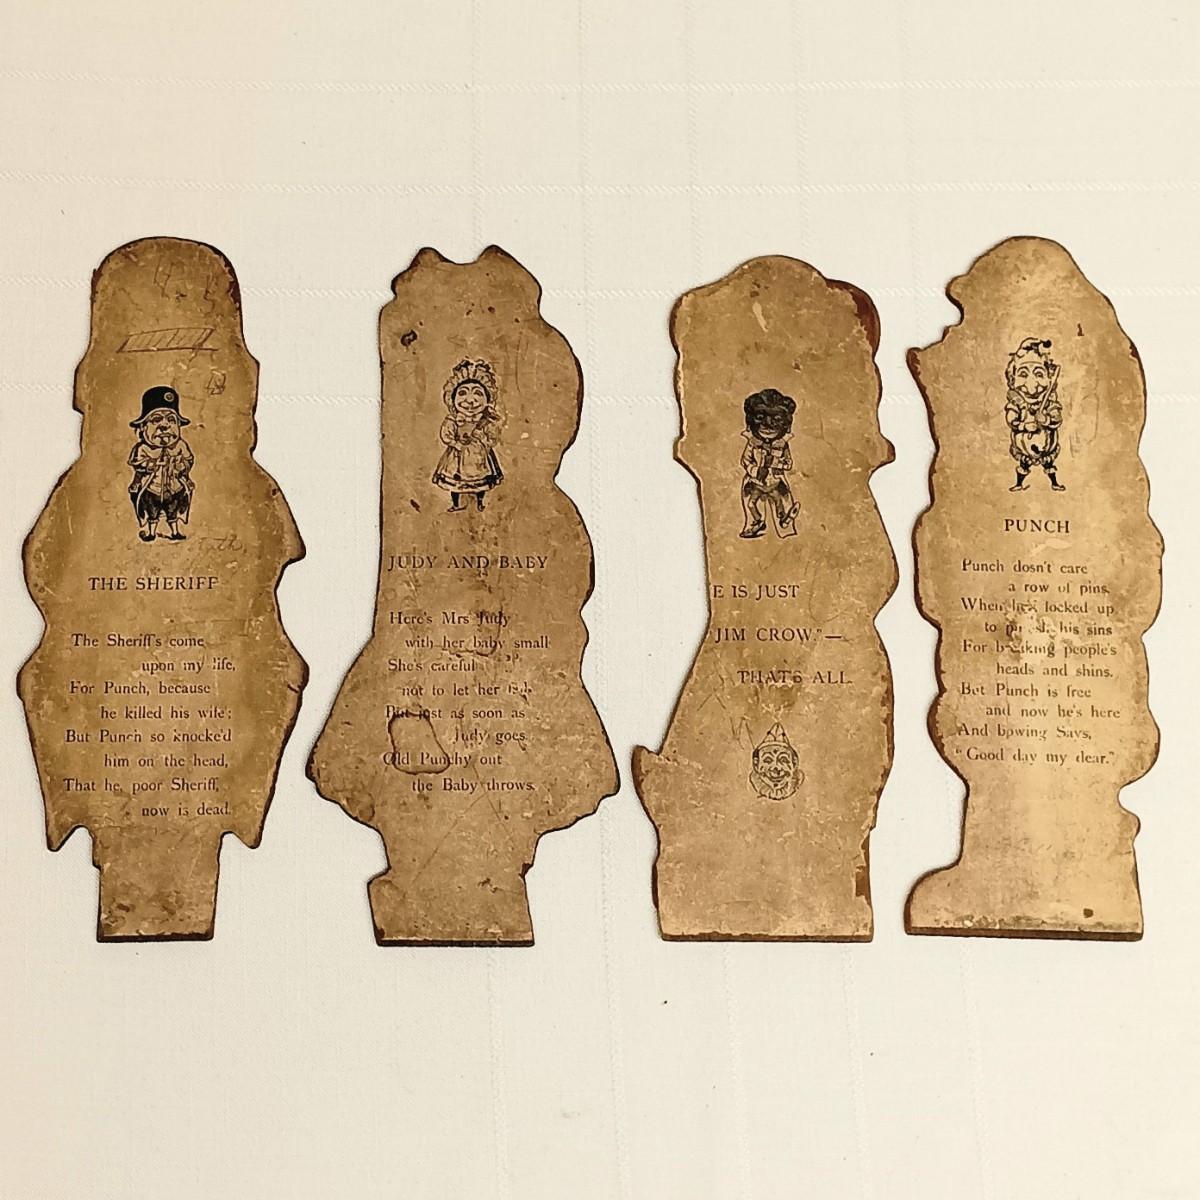 THE SHERIFF
The Sheriff's come
upon my life,
For Punch, because
he killed his wife;
But Punch so knocke'd
him on the head,
That he, poor Sheriff,
now is dead.
JUDY AND BABY
Here's Mrs Judy
with her baby small
She's careful
not to let her
But just as soon as
Judy goes
Old Punchy out
the Baby throws.
E IS JUST
JIM CROW."—
THAT'S ALL.
PUNCH
Punch dosn't care
a row of pins.
When locked up
to his sins
For breaking people's
heads and shins.
But Punch is free
and now he's here
And bowing Says,
"Good day my dear."